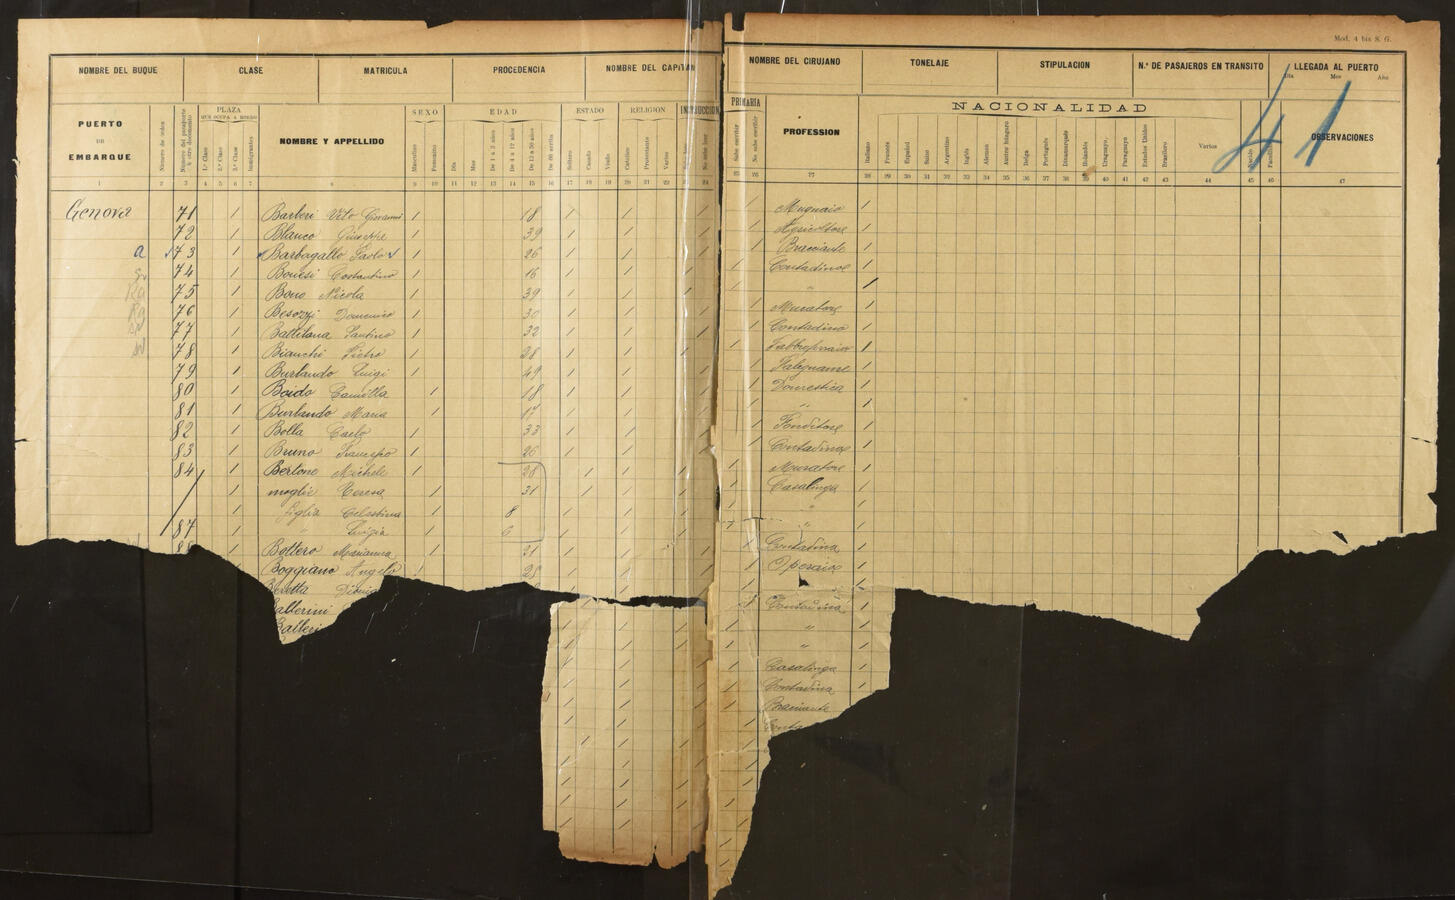 Mod. 4 bis S. G.
NOMBRE DEL BUQUE CLASE MATRICULA PROCEDENCIA NOMBRE DEL CAPITAN NOMBRE DEL CIRUJANO TONELAJE STIPULACION N.º DE PASAJEROS EN TRANSITO LLEGADA AL PUERTO
Dia Mes Año
41
PUERTO DE EMBARQUE Número de orden Número del pasaporte ú otro documento PLAZA QUE OCUPA A BORDO 1.ª Clase 2.ª Clase 3.ª Clase Inmigrantes NOMBRE Y APPELLIDO SEXO Masculino Femenino EDAD Dia Mes De 1 a 3 años De 4 a 12 años De 13 a 50 años De 60 arriba ESTADO Soltero Casado Viudo RELIGION Católico Protestante Varios INSTRUCCION PRIMARIA No sabe leer Sabe escribir No sabe escribir PROFESSION NACIONALIDAD Italiano Francés Español Suizo Argentino Inglés Aleman Austro húngaro Belga Portugués Dinamarqués Holandés Uruguayo Paraguayo Estados Unidos Brasilero Varios OBSERVACIONES
1 2 3 4 5 6 7 8 9 10 11 12 13 14 15 16 17 18 19 20 21 22 23 24 25 26 27 28 29 30 31 32 33 34 35 36 37 38 39 40 41 42 43 44 45 46 47
Genova 71 / Barberi Vito Giovanni / 18 / / / / Mugnaio /
72 / Blanco Giuseppe / 39 / / / / Agricoltore /
a 73 / Barbagallo Paolo / 26 / / / / Bracciante /
74 / Bonesi Costantino / 16 / / / / Contadino /
75 / Bono Nicola / 39 / / / / " /
76 / Besozzi Domenico / 30 / / / / Muratore /
77 / Battilana Santino / 32 / / / / Contadino /
78 / Bianchi Pietro / 28 / / / / Fabbroferraio /
79 / Burlando Luigi / 49 / / / / Falegname /
80 / Boido Camilla / 18 / / / / Domestica /
81 / Burlando Maria / 17 / / / / " /
82 / Bolla Carlo / 33 / / / / Fonditore /
83 / Bruno Francesco / 26 / / / / Contadino /
84 / Bertone Michele / / / / / Muratore /
/ moglie Teresa / 31 / / / / Casalinga /
/ figlia Celestina / 8 / / / / " /
87 / " Luigia / 6 / / / / " /
/ Bottero Marianna / 21 / / / / Contadina /
Boggiano Angelo / / / / / Operaio /
Beretta
Ballerini Contadina /
Balleri " /
" /
Casalinga /
Contadina /
Bracciante